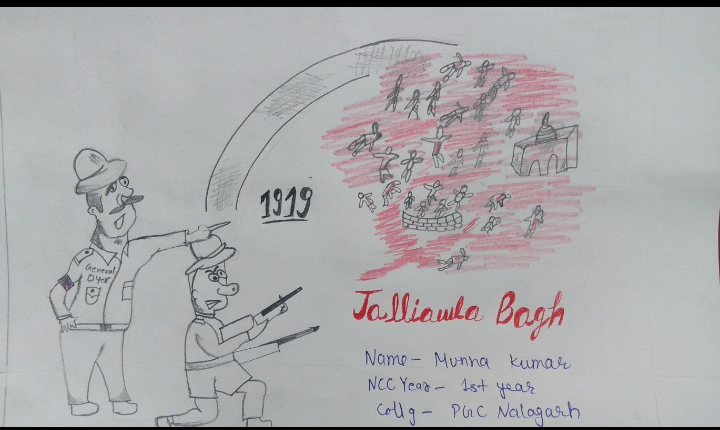 General
Dyer
1919
Jalliawla Bagh
Name- Munna Kumar
NCC Year- 1st year
Collg- PGC Nalagarh